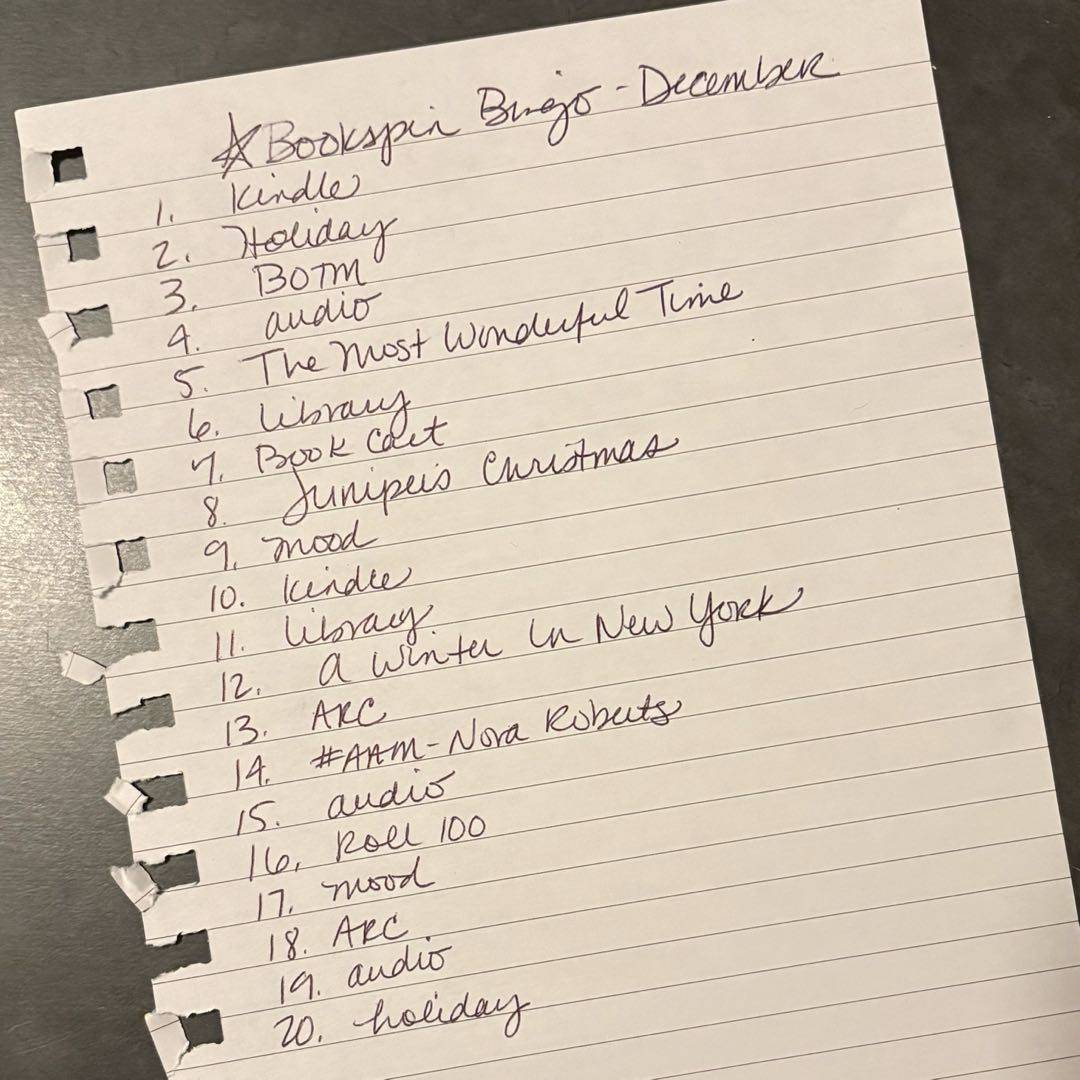 ☆Bookspin Bingo - December
1. Kindle
2. Holiday
3. BOTM
4. audio
5. The Most Wonderful Time
6. Library
7. Book Cart
8. Juniper's Christmas
9. mood
10. Kindle
11. Library
12. A Winter In New York
13. ARC
14. #AAM - Nora Roberts
15. audio
16. Roll 100
17. mood
18. ARC
19. audio
20. holiday